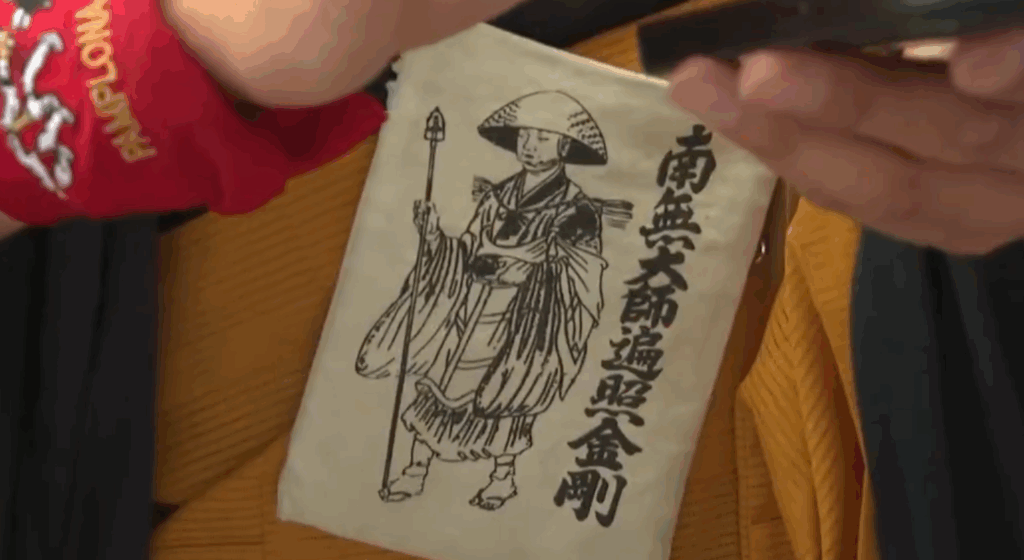 南無大師遍照金剛
PAMPLONA